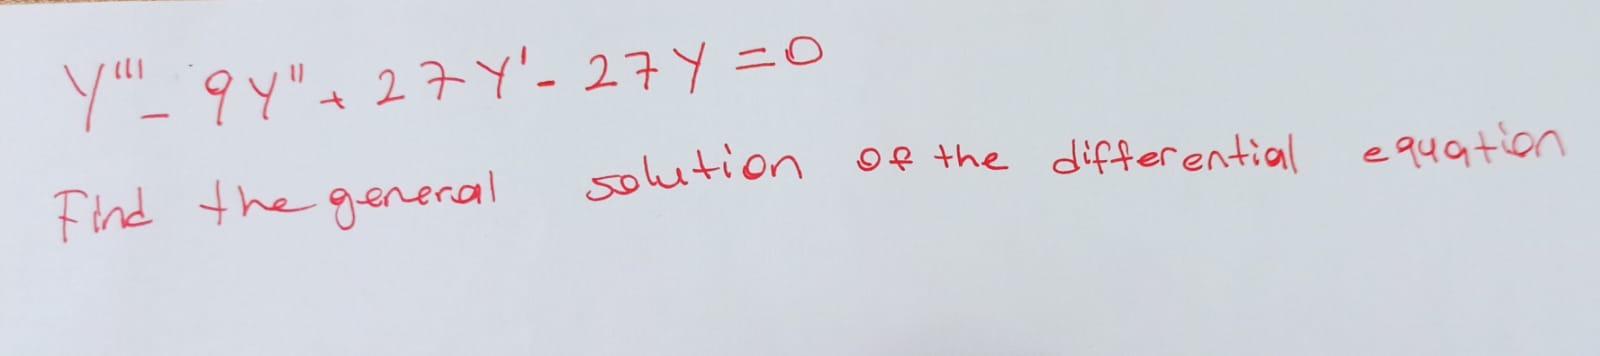 Y''' - 9Y" + 27Y' - 27Y = 0
Find the general solution of the differential equation